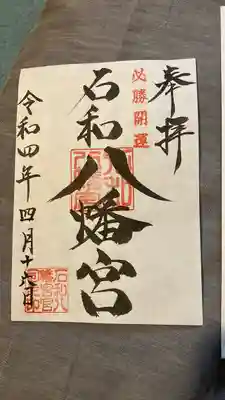 奉拝
必勝開運
石和八幡宮
令和四年四月十六日